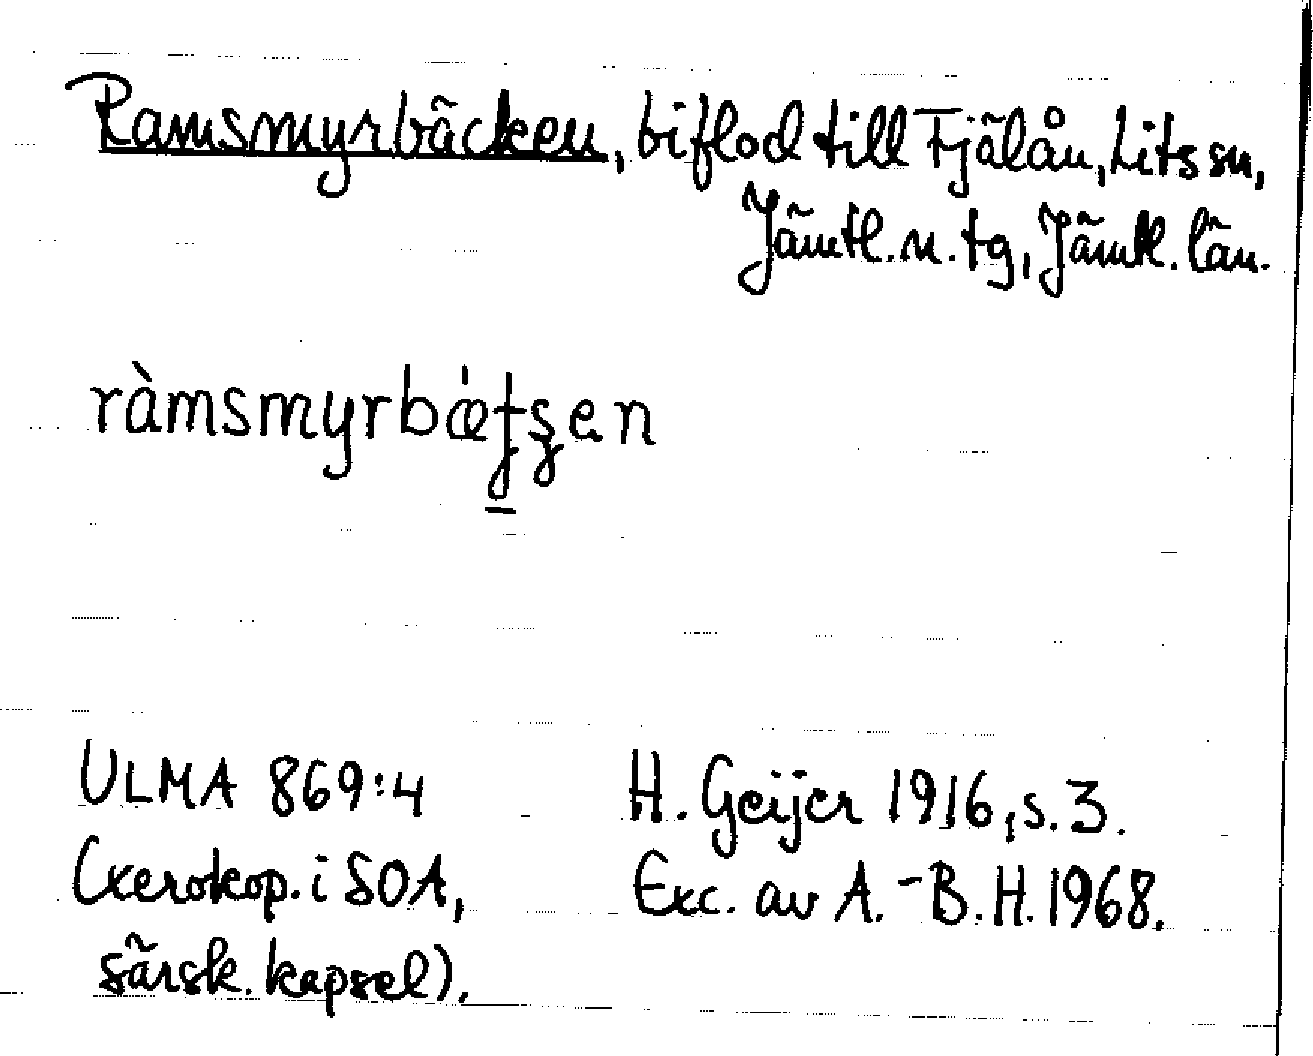 Ramsmyrbäcken, biflod till Fjälån, Lits sn,
Jämtl. n. tg, Jämtl. län.
ràmsmyrbǽʈʂen
ULMA 869:4
(xerokop. i SOA,
särsk. kapsel).
H. Geijer 1916, s. 3.
Exc. av A.-B. H. 1968.